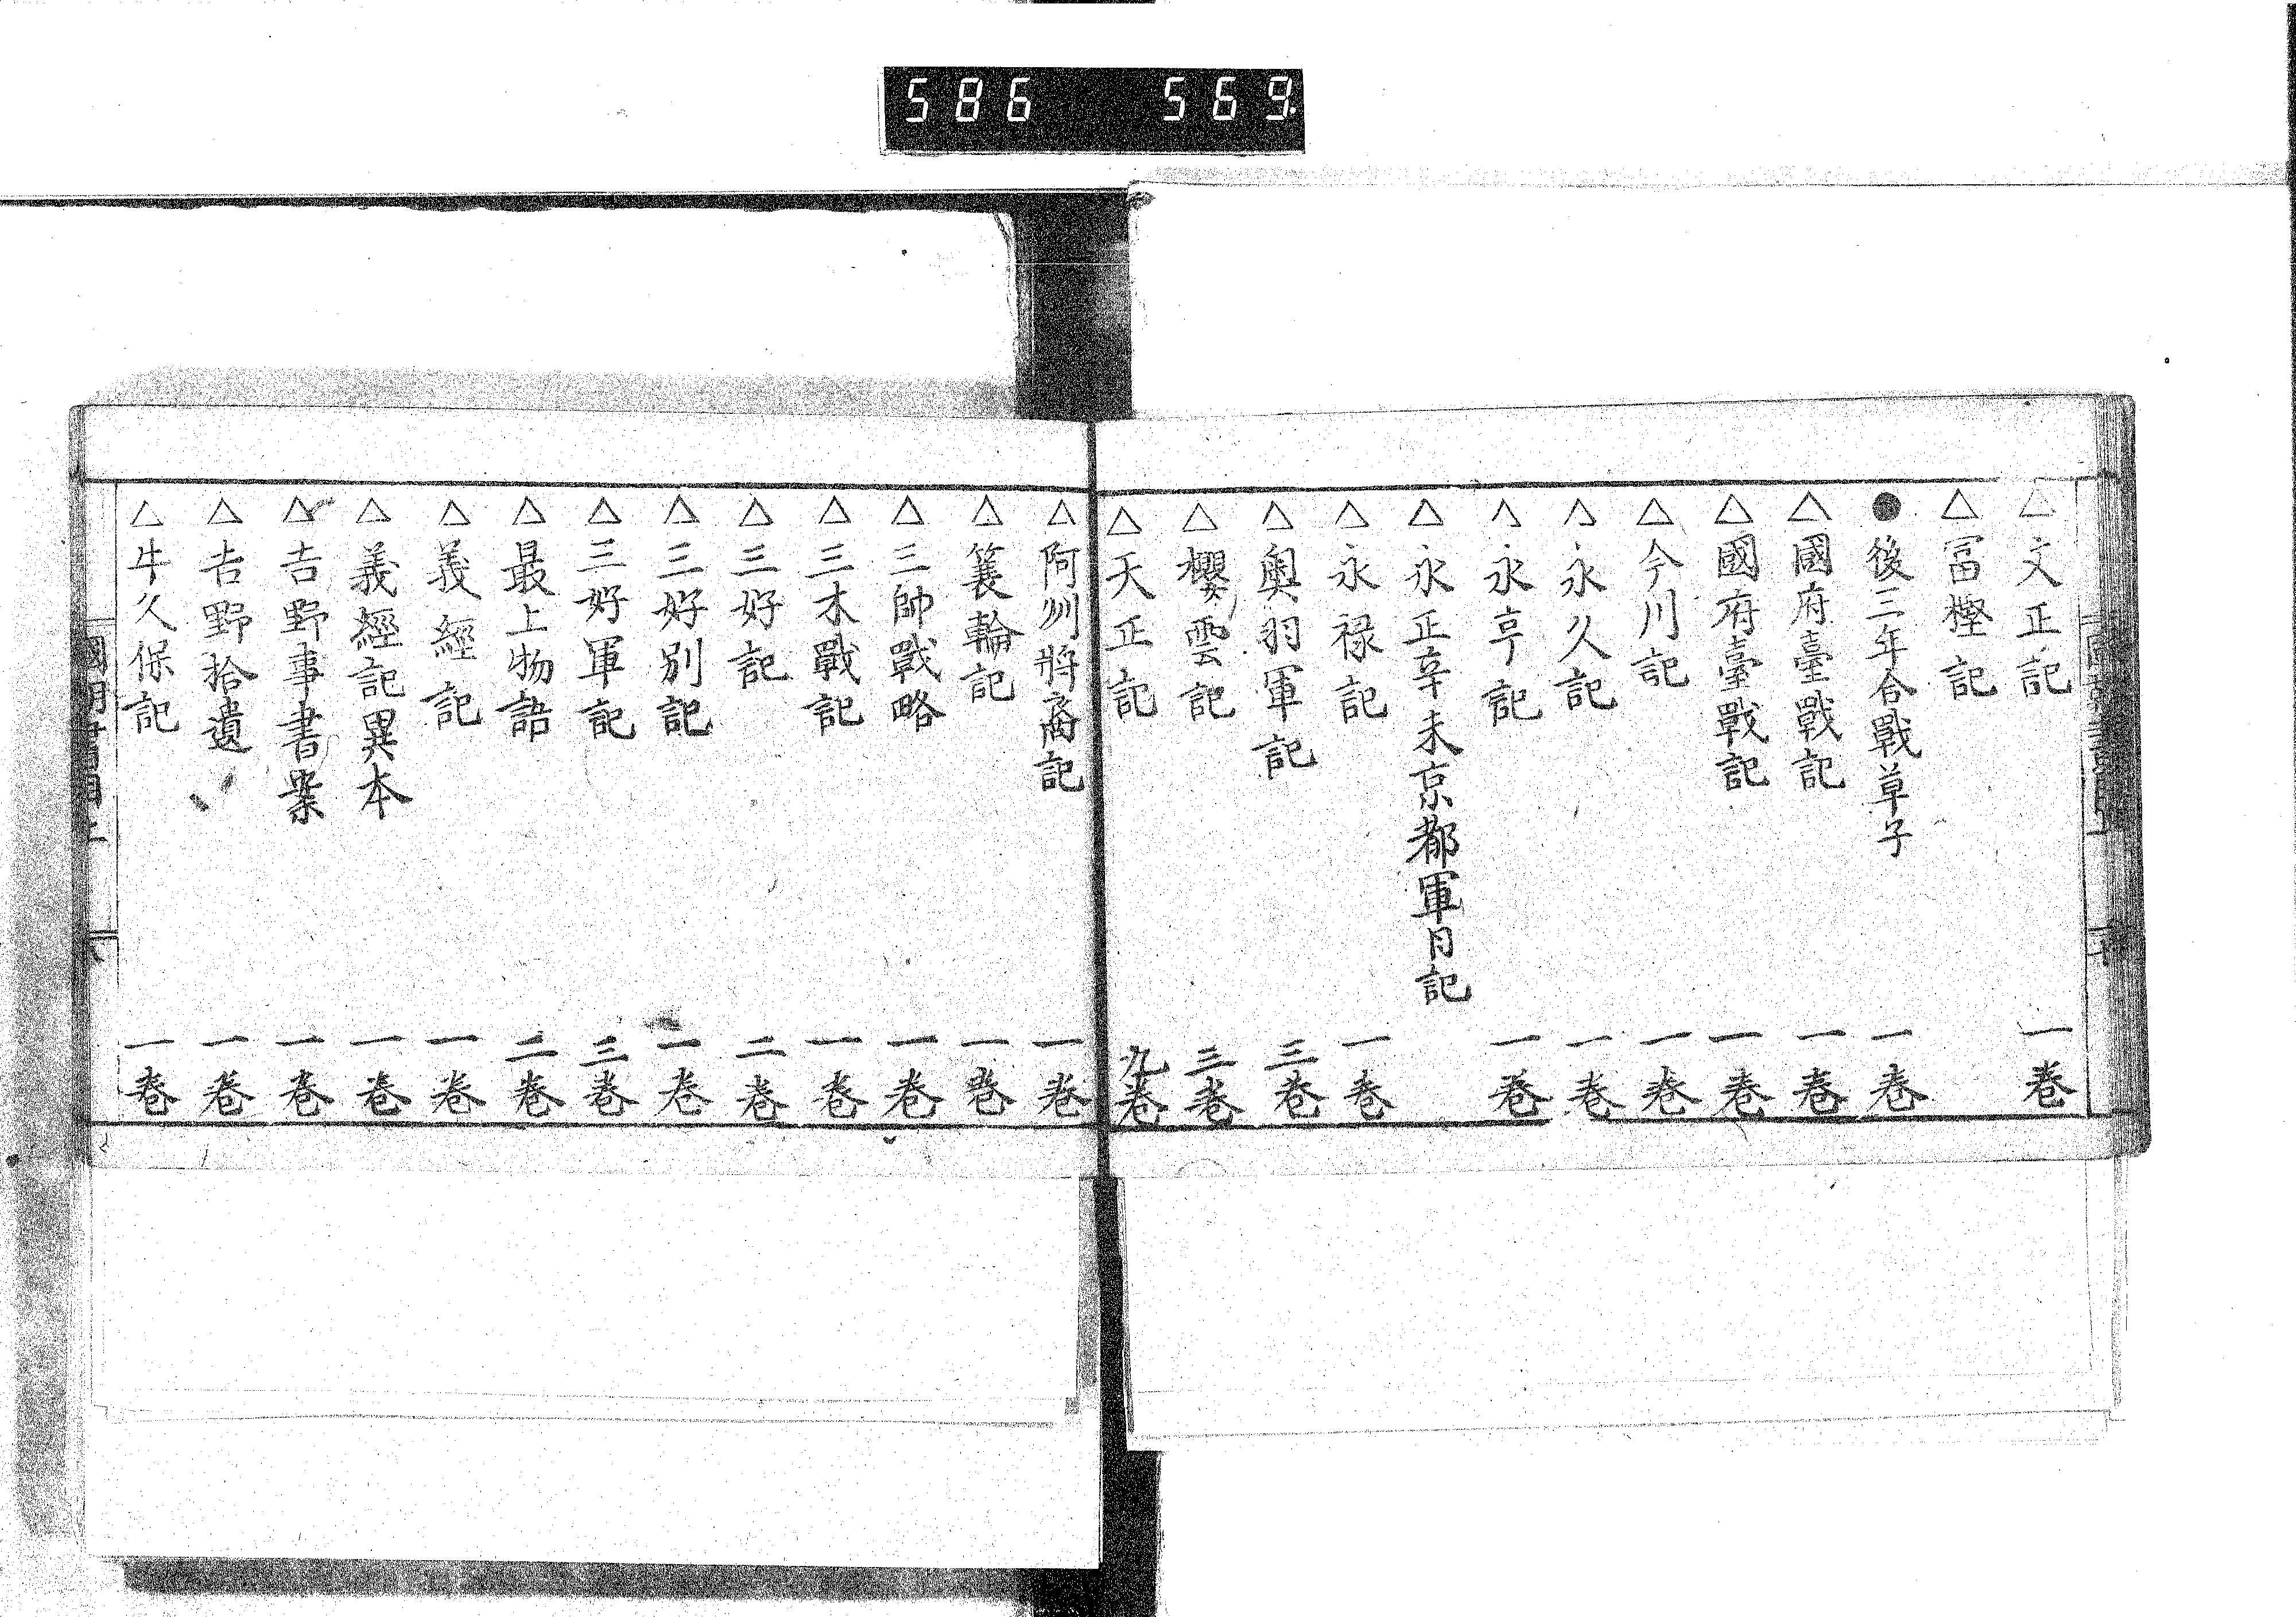 586 569
△文正記 一巻
△冨樫記
●後三年合戰草子 一巻
△國府臺戰記 一巻
△國府臺戰記 一巻
△今川記 一巻
△永久記 一巻
△永享記 一巻
△永正辛未京都軍日記
△永禄記 一巻
△奥羽軍記 三巻
△櫻雲記 三巻
△天正記 九巻
△阿州將裔記 一巻
△簑輪記 一巻
△三帥戰略 一巻
△三木戰記 一巻
△三好記 二巻
△三好別記 一巻
△三好軍記 三巻
△最上物語 二巻
△義經記 一巻
△義經記異本 一巻
△吉野事書案 一巻
△吉野拾遺 一巻
△牛久保記 一巻